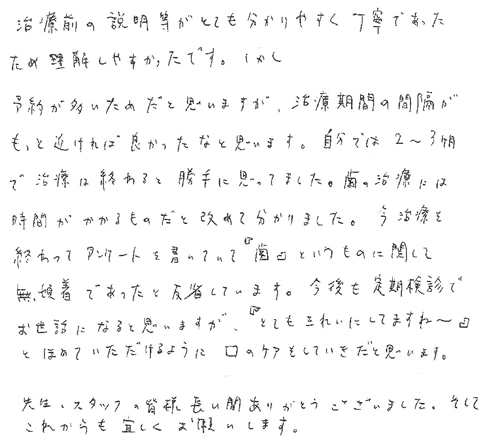 治療前の説明等がとても分かりやすく丁寧であった
ため理解しやすかったです。しかし
予約が多いためだと思いますが、治療期間の間隔が
もっと近ければ良かったなと思います。自分では2～3ヶ月
で治療は終わると勝手に思ってました。歯の治療には
時間がかかるものだと改めて分かりました。今治療を
終わってアンケートを書いていて『歯』というものに関して
無頓着であったと反省しています。今後も定期検診で
お世話になると思いますが、『とてもきれいにしてますね～』
とほめていただけるように口のケアをしていきだと思います。
先生、スタッフの皆様長い間ありがとうございました。そして
これからも宜しくお願いします。